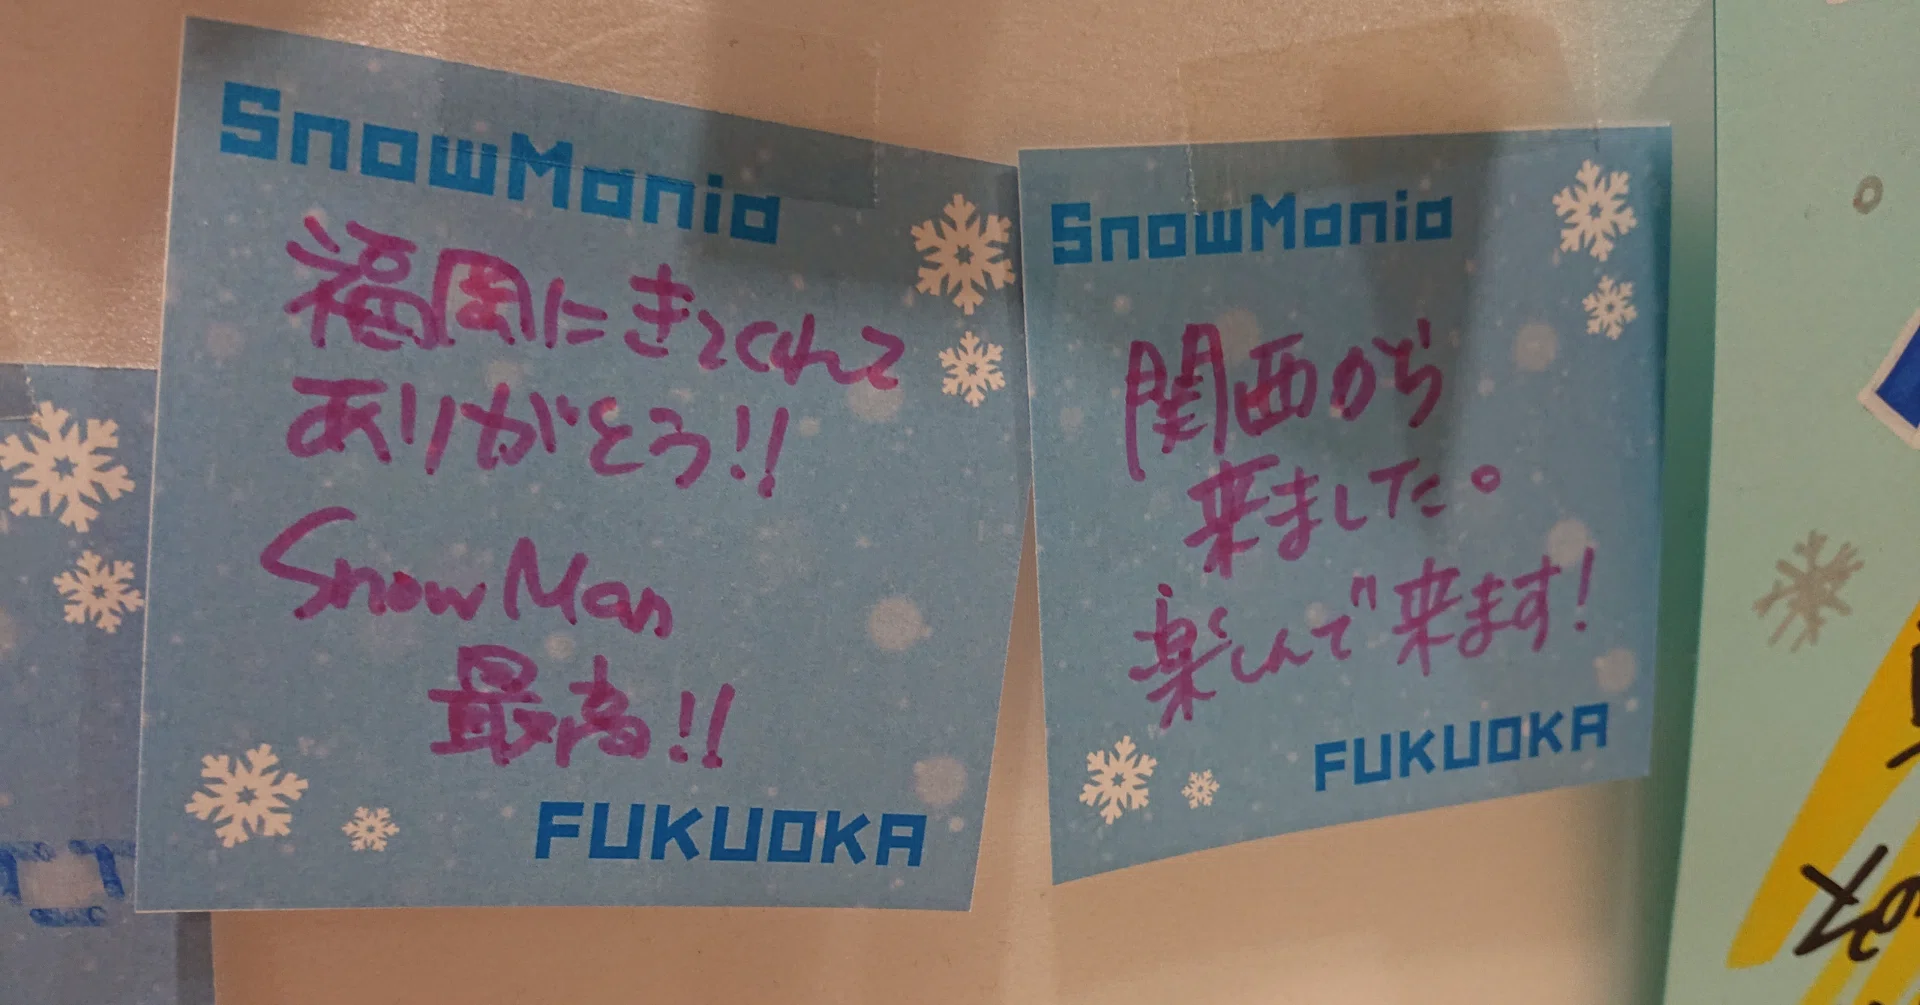 SnowMania
福岡にきてくれて
ありがとう!!
Snow Man
最高!!
FUKUOKA
SnowMania
関西から
来ました。
楽しんで来ます!
FUKUOKA